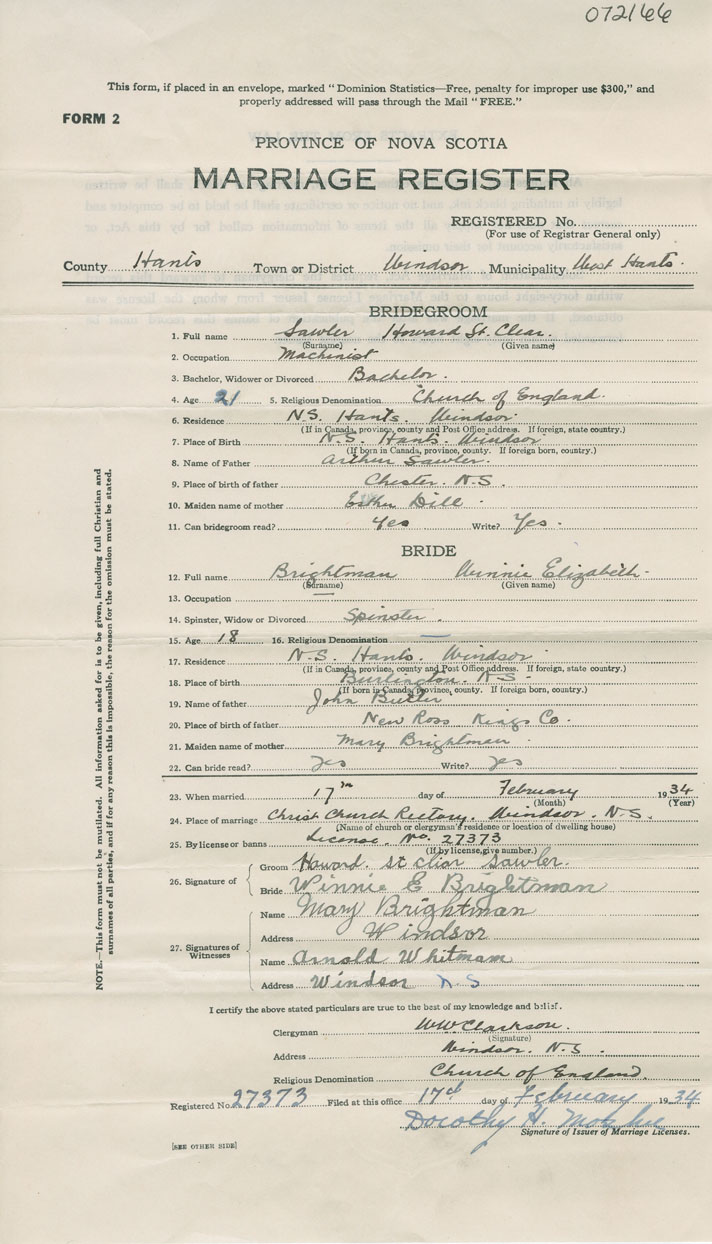 072166
This form, if placed in an envelope, marked "Dominion Statistics—Free, penalty for improper use $300," and
properly addressed will pass through the Mail "FREE."
FORM 2
PROVINCE OF NOVA SCOTIA
MARRIAGE REGISTER
REGISTERED No.
(For use of Registrar General only)
County Hants Town or District Windsor Municipality West Hants.
BRIDEGROOM
1. Full name Sawler Howard St. Clear.
(Surname) (Given name)
2. Occupation Machinist
3. Bachelor, Widower or Divorced Bachelor.
4. Age 21 5. Religious Denomination Church of England.
6. Residence N.S. Hants. Windsor.
(If in Canada, province, county and Post Office address. If foreign, state country.)
7. Place of Birth N.S. Hants. Windsor
(If born in Canada, province, county. If foreign born, country.)
8. Name of Father Arthur Sawler.
9. Place of birth of father Chester. N.S.
10. Maiden name of mother Esther Dill.
11. Can bridegroom read? Yes Write? Yes.
BRIDE
12. Full name Brightman Winnie Elizabeth.
(Surname) (Given name)
13. Occupation —
14. Spinster, Widow or Divorced Spinster.
15. Age 18 16. Religious Denomination —
17. Residence N.S. Hants. Windsor.
(If in Canada, province, county and Post Office address. If foreign, state country.)
18. Place of birth Burlington. N.S.
(If born in Canada, province, county. If foreign born, country.)
19. Name of father John Butler
20. Place of birth of father New Ross Kings Co.
21. Maiden name of mother Mary Brightman
22. Can bride read? Yes Write? Yes
23. When married 17th day of February 1934
(Month) (Year)
24. Place of marriage Christ Church Rectory. Windsor. N.S.
(Name of church or clergyman's residence or location of dwelling house)
25. By license or banns License. No. 27373
(If by license, give number.)
26. Signature of
Groom Howard. St Clair Sawler.
Bride Winnie E Brightman
27. Signatures of Witnesses
Name Mary Brightman
Address Windsor
Name Arnold Whitman
Address Windsor N.S
I certify the above stated particulars are true to the best of my knowledge and belief.
Clergyman WW Clarkson.
(Signature)
Address Windsor. N.S.
Religious Denomination Church of England.
Registered No. 27373 Filed at this office 17th day of February 1934
Dorothy H.
Signature of Issuer of Marriage Licenses.
[SEE OTHER SIDE]
NOTE.—This form must not be mutilated. All information asked for is to be given, including full Christian and
surnames of all parties, and if for any reason this is impossible, the reason for the omission must be stated.